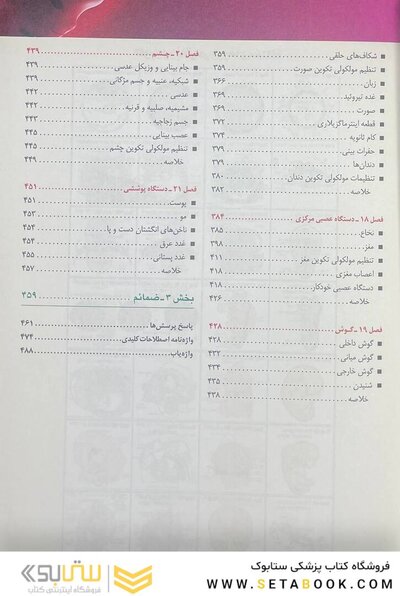 شکاف‌های حلقی ۳۵۹
تنظیم مولکولی تکوین صورت ۳۵۹
زبان ۳۶۶
غده تیروئید ۳۶۹
صورت ۳۶۹
قطعه اینترماگزیلاری ۳۷۲
کام ثانویه ۳۷۴
حفرات بینی ۳۷۹
دندان‌ها ۳۷۹
تنظیمات مولکولی تکوین دندان ۳۸۰
خلاصه ۳۸۲
فصل ۱۸ ـ دستگاه عصبی مرکزی ۳۸۴
نخاع ۳۸۵
مغز ۳۹۸
تنظیم مولکولی تکوین مغز ۴۱۱
اعصاب مغزی ۴۱۸
دستگاه عصبی خودکار ۴۱۸
خلاصه ۴۲۶
فصل ۱۹ ـ گوش ۴۲۸
گوش داخلی ۴۲۸
گوش میانی ۴۳۲
گوش خارجی ۴۳۴
شنیدن ۴۳۵
خلاصه ۴۳۸
فصل ۲۰ ـ چشم ۴۳۹
جام بینایی و وزیکل عدسی ۴۳۹
شبکیه، عنبیه و جسم مژگانی ۴۳۹
عدسی ۴۴۲
مشیمیه، صلبیه و قرنیه ۴۴۲
جسم زجاجیه ۴۴۳
عصب بینایی ۴۴۵
تنظیم مولکولی تکوین چشم ۴۴۵
خلاصه ۴۴۹
فصل ۲۱ ـ دستگاه پوششی ۴۵۱
پوست ۴۵۱
مو ۴۵۳
ناخن‌های انگشتان دست و پا ۴۵۴
غدد عرق ۴۵۴
غدد پستانی ۴۵۵
خلاصه ۴۵۷
بخش ۳ ـ ضمائم ۴۵۹
پاسخ پرسش‌ها ۴۶۱
واژه‌نامه اصطلاحات کلیدی ۴۷۴
واژه‌یاب ۴۸۸
فروشگاه کتاب پزشکی ستابوک
WWW.SETABOOK.COM
ستابوک
فروشگاه اینترنتی کتاب